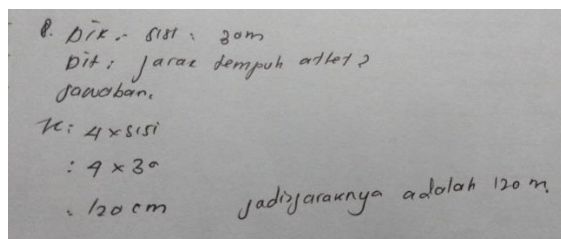 8. Dik :- sisi : 30m
Dit : jarak tempuh atlet ?
Jawaban.
K : 4 x sisi
: 4 x 30
: 120 cm jadi jaraknya adalah 120 m.